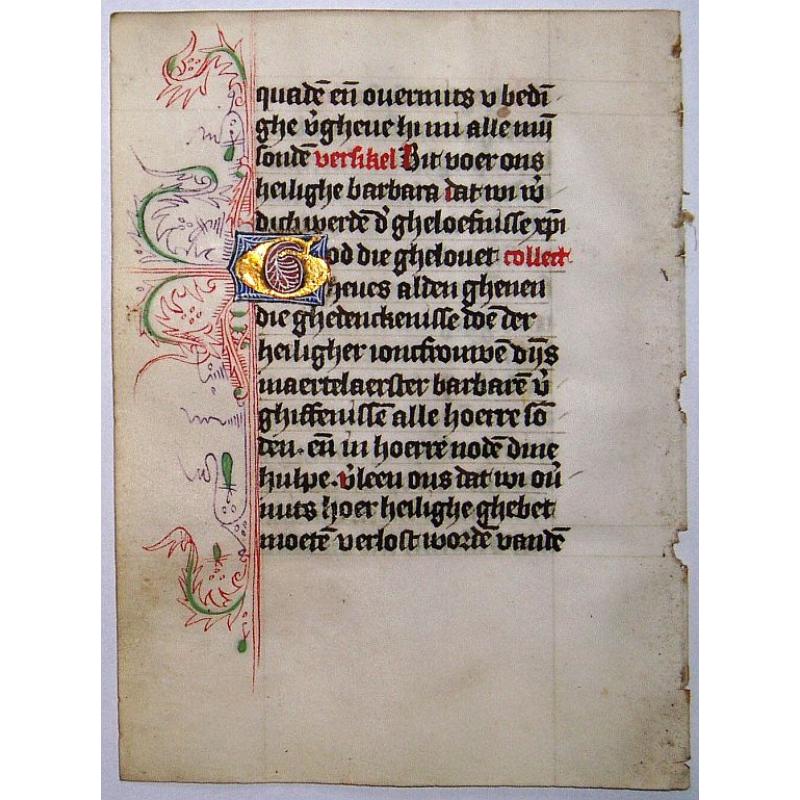 quadē eñ ouermits v bedī
ghe v̉gheue hi mi alle mijn
sondē versikel Bit voer ons
heilighe barbara dat wi w̉
dich werdē d̉ gheloefnisse xp̄i
God die ghelouet collect
heues alden ghenen
die ghedenckenisse doē der
heiligher ioncfrouwē dijs
maertelaerster barbarē v̉
ghiffenissē alle hoerre sō
den. eñ in hoerre nodē dine
hulpe. v̉leen ons dat wi oủ
mits hoer heilighe ghebet
moetē verlost wordē vandē